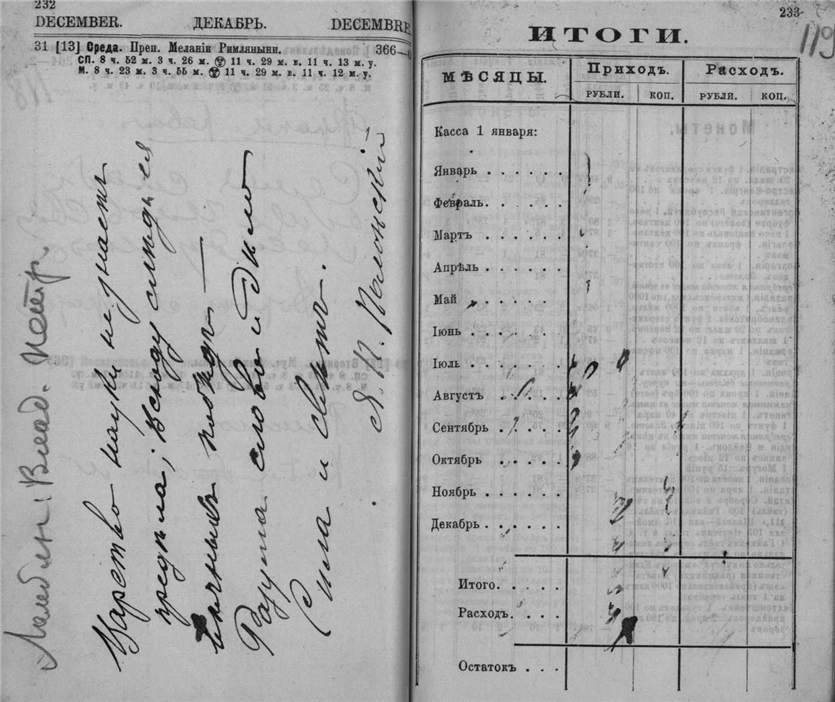 232
DECEMBER. ДЕКАБРЬ. DECEMBRE
31 [13] Среда. Преп. Меланіи Римляныни. 366—0
СП. 8 ч. 52 м. 3 ч. 26 м. 11 ч. 29 м. в. 11 ч. 13 м. у.
М. 8 ч. 23 м. 3 ч. 55 м. 11 ч. 29 м. в. 11 ч. 12 м. у.
Влад. Петр.
Царство науки не знаетъ
предѣла; Всюду слѣды ея
вѣчныхъ побѣдъ —
Разума слово и дѣло
Сила и Свѣтъ.
Я. П. Полонский
233
119
ИТОГИ.
МѢСЯЦЫ. Приходъ. Расходъ.
РУБЛИ. КОП. РУБЛИ. КОП.
Касса 1 января:
Январь . . . . .
Февраль. . . . .
Мартъ . . . . .
Апрѣль . . . . .
Май . . . . .
Іюнь . . . . .
Іюль . . . . .
Августъ . . . . .
Сентябрь . . . . .
Октябрь . . . . .
Ноябрь . . . . .
Декабрь . . . . .
Итого. . . .
Расходъ. . . .
Остатокъ . . .